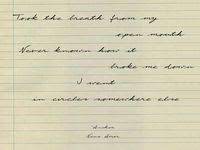 Took the breath from my
open mouth
Never known how it
broke me down
I went
in circles somewhere else